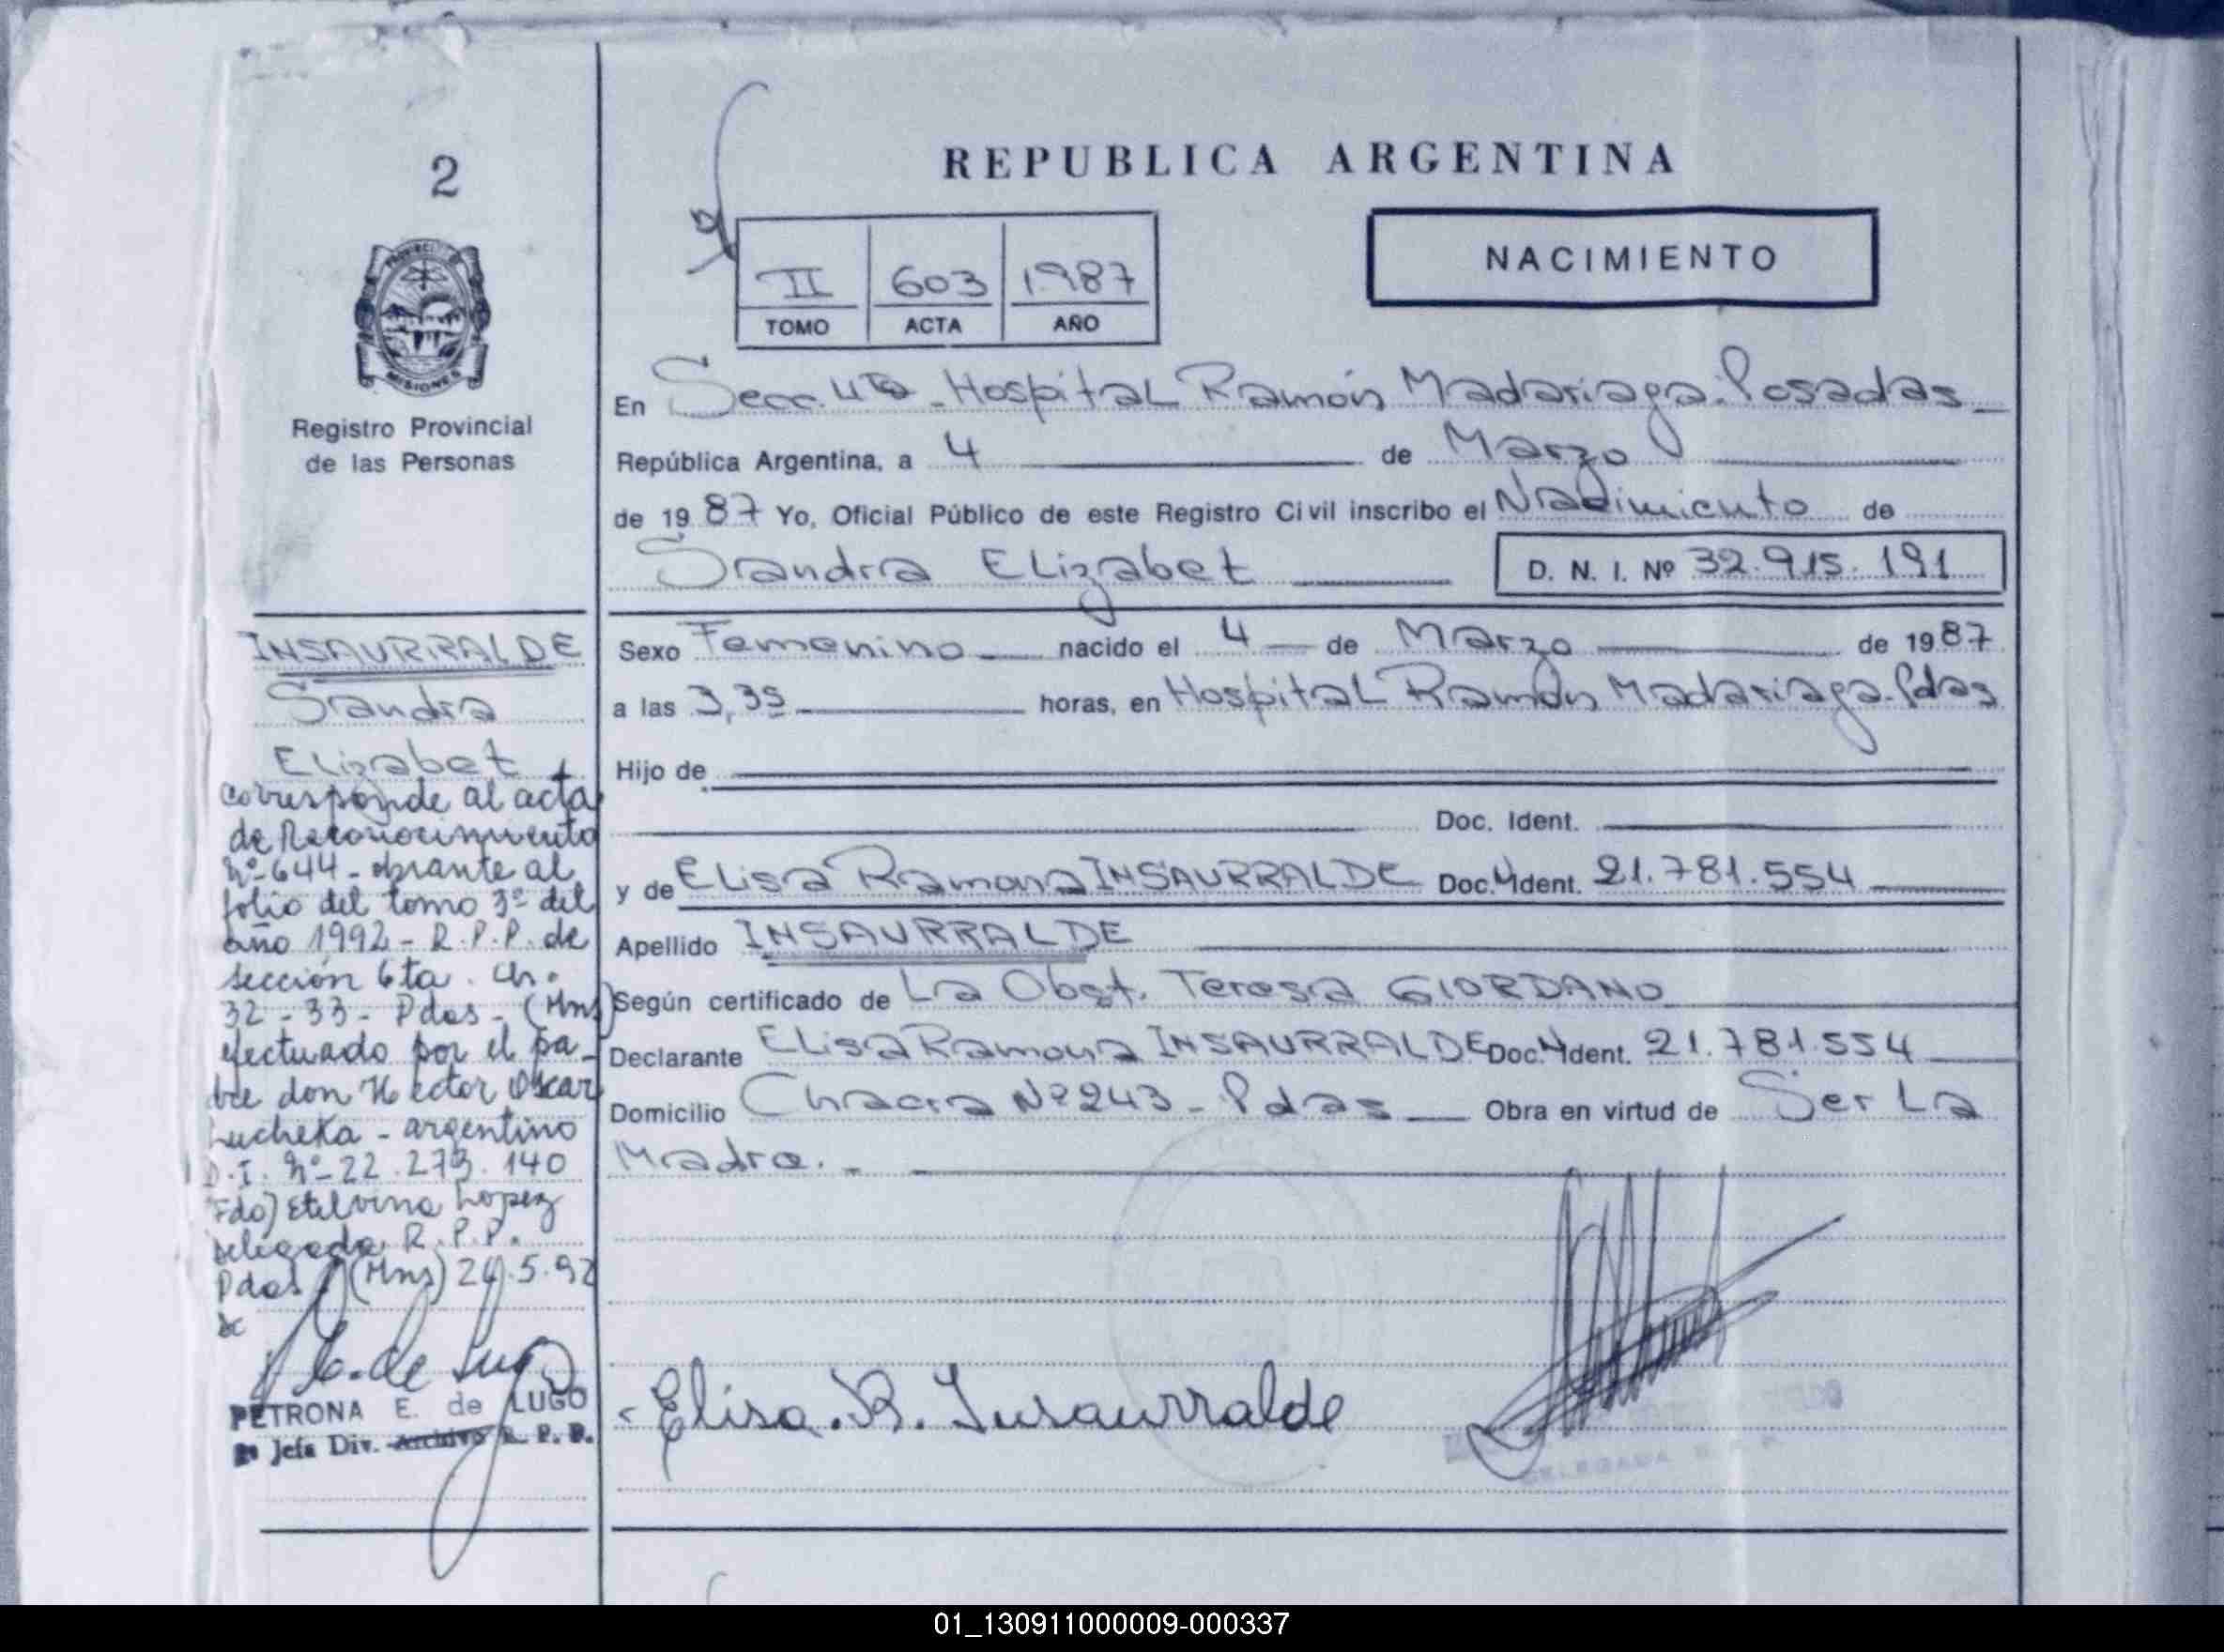 2
PROVINCIA
MISIONES
Registro Provincial
de las Personas
INSAURRALDE
Sandra
Elizabet
corresponde al acta
de Reconocimiento
Nº 644 - obrante al
folio del tomo 3º del
año 1992 - R.P.P. de
sección 6ta. Ch.
32 - 33 - Pdas - (Mns)
efectuado por el pa-
dre don Hector Oscar
Lucheka - argentino
D.I. Nº 22.273.140
Fdo) Etelvina Lopez
delegada R.P.P.
Pdas (Mns) 24.5.92
PETRONA E. de LUGO
Jefa Div. Archivo R. P. P.
REPUBLICA ARGENTINA
II 603 1987
TOMO ACTA AÑO
NACIMIENTO
En Secc. 4ta - Hospital Ramón Madariaga. Posadas
República Argentina, a 4 de Marzo
de 1987 Yo, Oficial Público de este Registro Civil inscribo el Nacimiento de
Sandra Elizabet D. N. I. Nº 32.915.191
Sexo Femenino nacido el 4 de Marzo de 1987
a las 3,35 horas, en Hospital Ramón Madariaga. Pdas
Hijo de
Doc. Ident.
y de Elisa Ramona INSAURRALDE Doc. Ident. 21.781.554
Apellido INSAURRALDE
Según certificado de La Obst. Teresa GIORDANO
Declarante Elisa Ramona INSAURRALDE Doc. Ident. 21.781.554
Domicilio Chacra Nº 243 - Pdas Obra en virtud de Ser La
Madre. -
Elisa. R. Insaurralde
DELEGADA
01_130911000009-000337